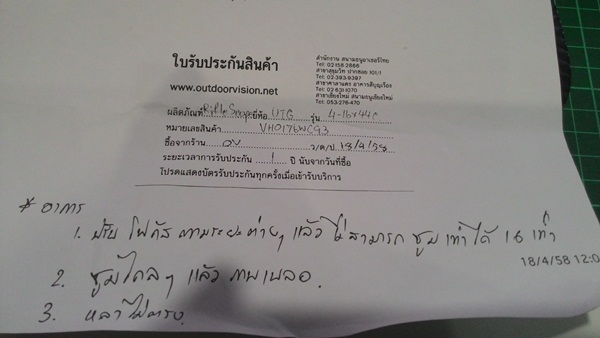 ใบรับประกันสินค้า
www.outdoorvision.net
สำนักงาน สนามธนูอาเชอรี่ไทย
Tel: 02-158-2866
สาขาสุขุมวิท ปากซอย 101/1
Tel: 02-393-9397
Tel: 02-631-1070
สาขาเชียงใหม่ สนามธนูเชียงใหม่
Tel: 053-276-470
ผลิตภัณฑ์ Rifle Scope ยี่ห้อ UTG รุ่น 4-16x44
หมายเลขสินค้า VH0176WC93
ซื้อจากร้าน OV ว/ด/ป 18/4/58
ระยะเวลาการรับประกัน 1 ปี นับจากวันที่ซื้อ
โปรดแสดงบัตรรับประกันทุกครั้งเมื่อเข้ารับบริการ
* อาการ
1. ปรับ โฟกัส ตามระยะต่างๆ แล้ว ไม่สามารถ ซูม เท่าได้ 16 เท่า
18/4/58 12:0
2. ซูมไกลๆ แล้ว ภาพเบลอ.
3.